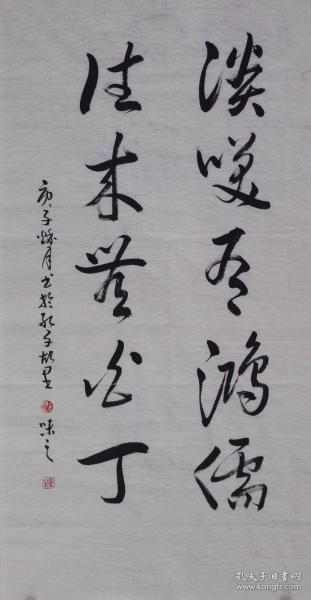 淡笑有鸿儒
往来无白丁
庚子秋月书于孔子故里 味之
孔夫子旧书网
www.kongfz.com